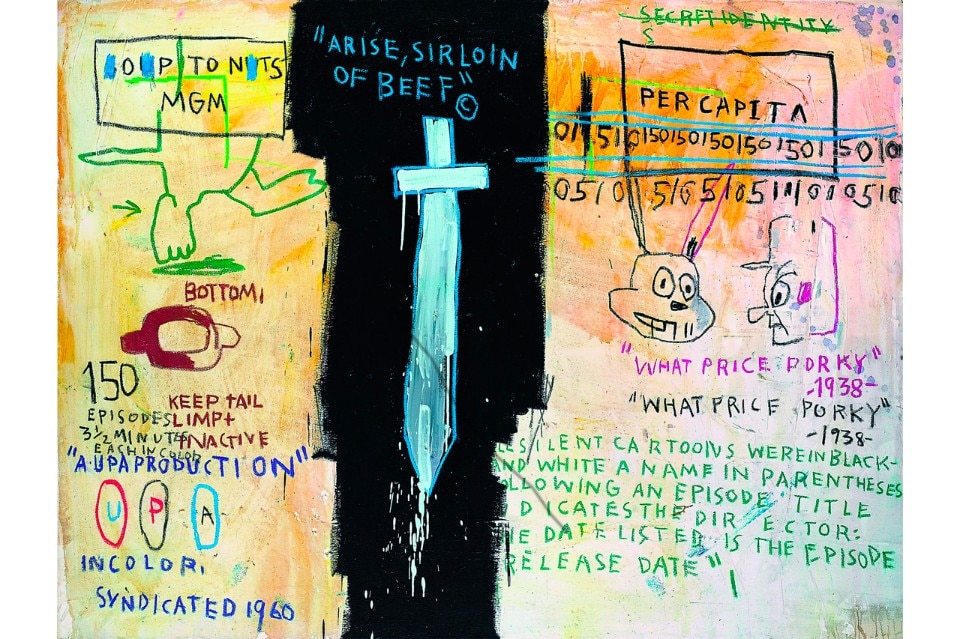 SOUP TO NUTS
MGM
BOTTOM,
150
EPISODES
3½ MINUTES
EACH IN COLOR
KEEP TAIL
LIMP+
INACTIVE
"A UPA PRODUCTION"
U P A
IN COLOR.
SYNDICATED 1960
"ARISE, SIRLOIN
OF BEEF"©
SECRET IDENTITY
S
PER CAPITA
"WHAT PRICE PORKY"
-1938-
"WHAT PRICE PORKY"
-1938-
SILENT CARTOONS WERE IN BLACK-
AND WHITE A NAME IN PARENTHESES
OLLOWING AN EPISODE TITLE
DICATES THE DIRECTOR:
HE DATE LISTED IS THE EPISODE
RELEASE DATE"